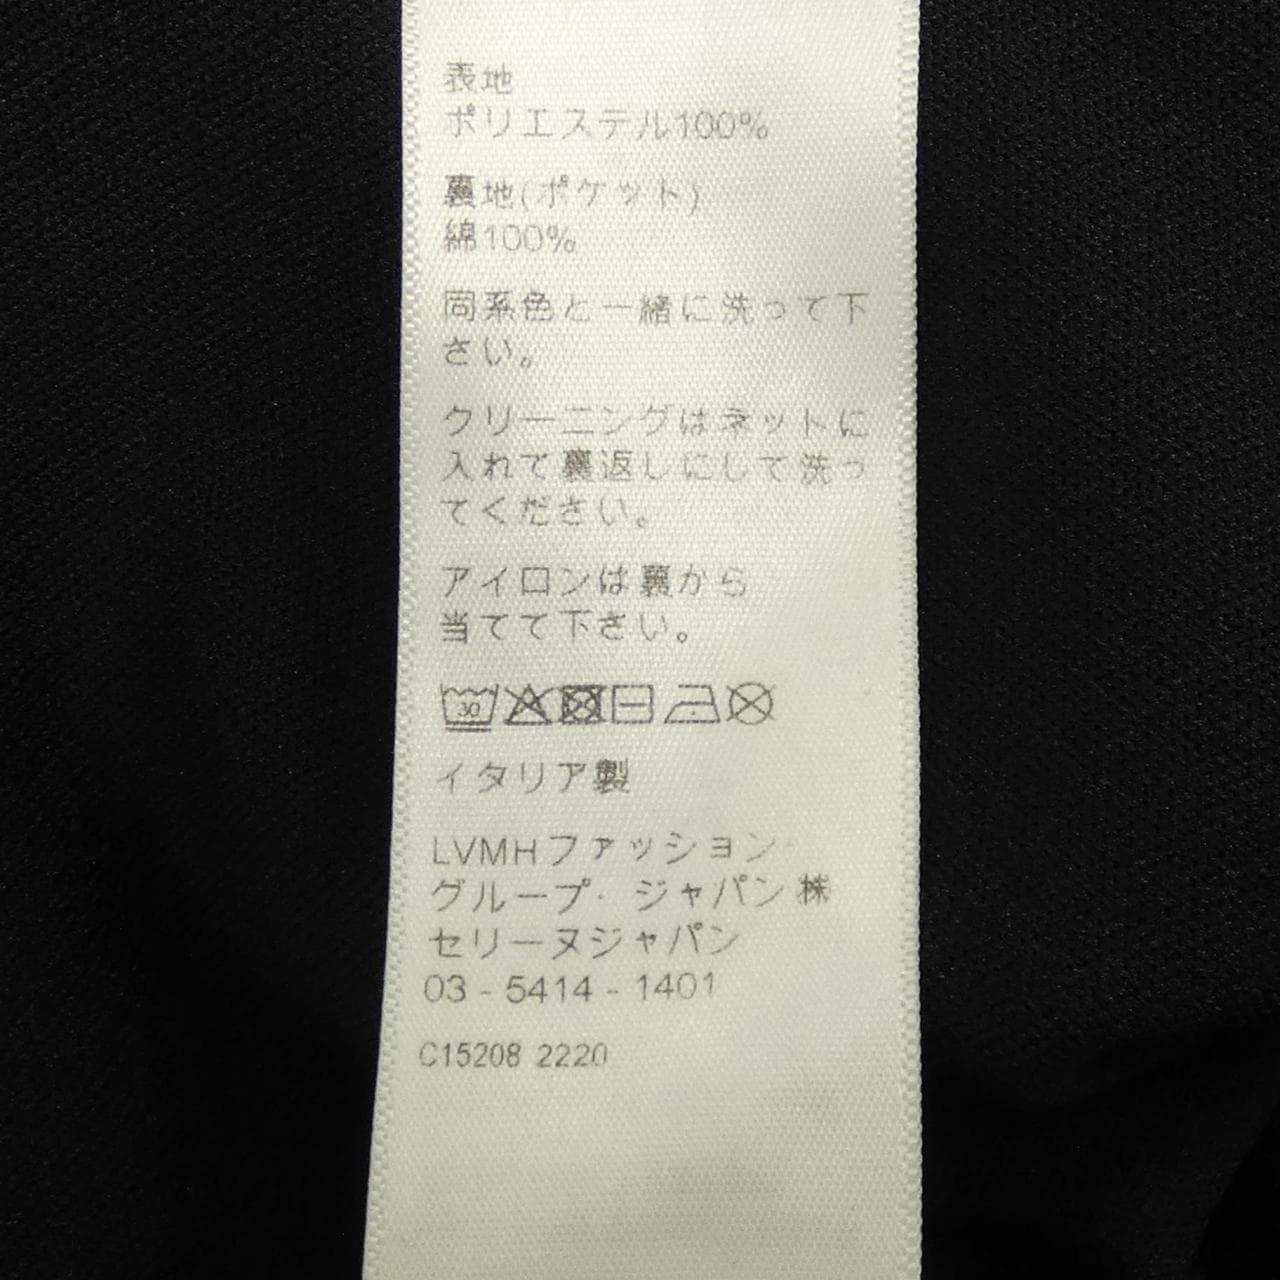 表地
ポリエステル100%
裏地(ポケット)
綿100%
同系色と一緒に洗って下
さい。
クリーニングはネットに
入れて裏返しにして洗っ
てください。
アイロンは裏から
当てて下さい。
30
イタリア製
LVMHファッション・
グループ・ジャパン株
セリーヌジャパン
03 - 5414 - 1401
C15208 2220